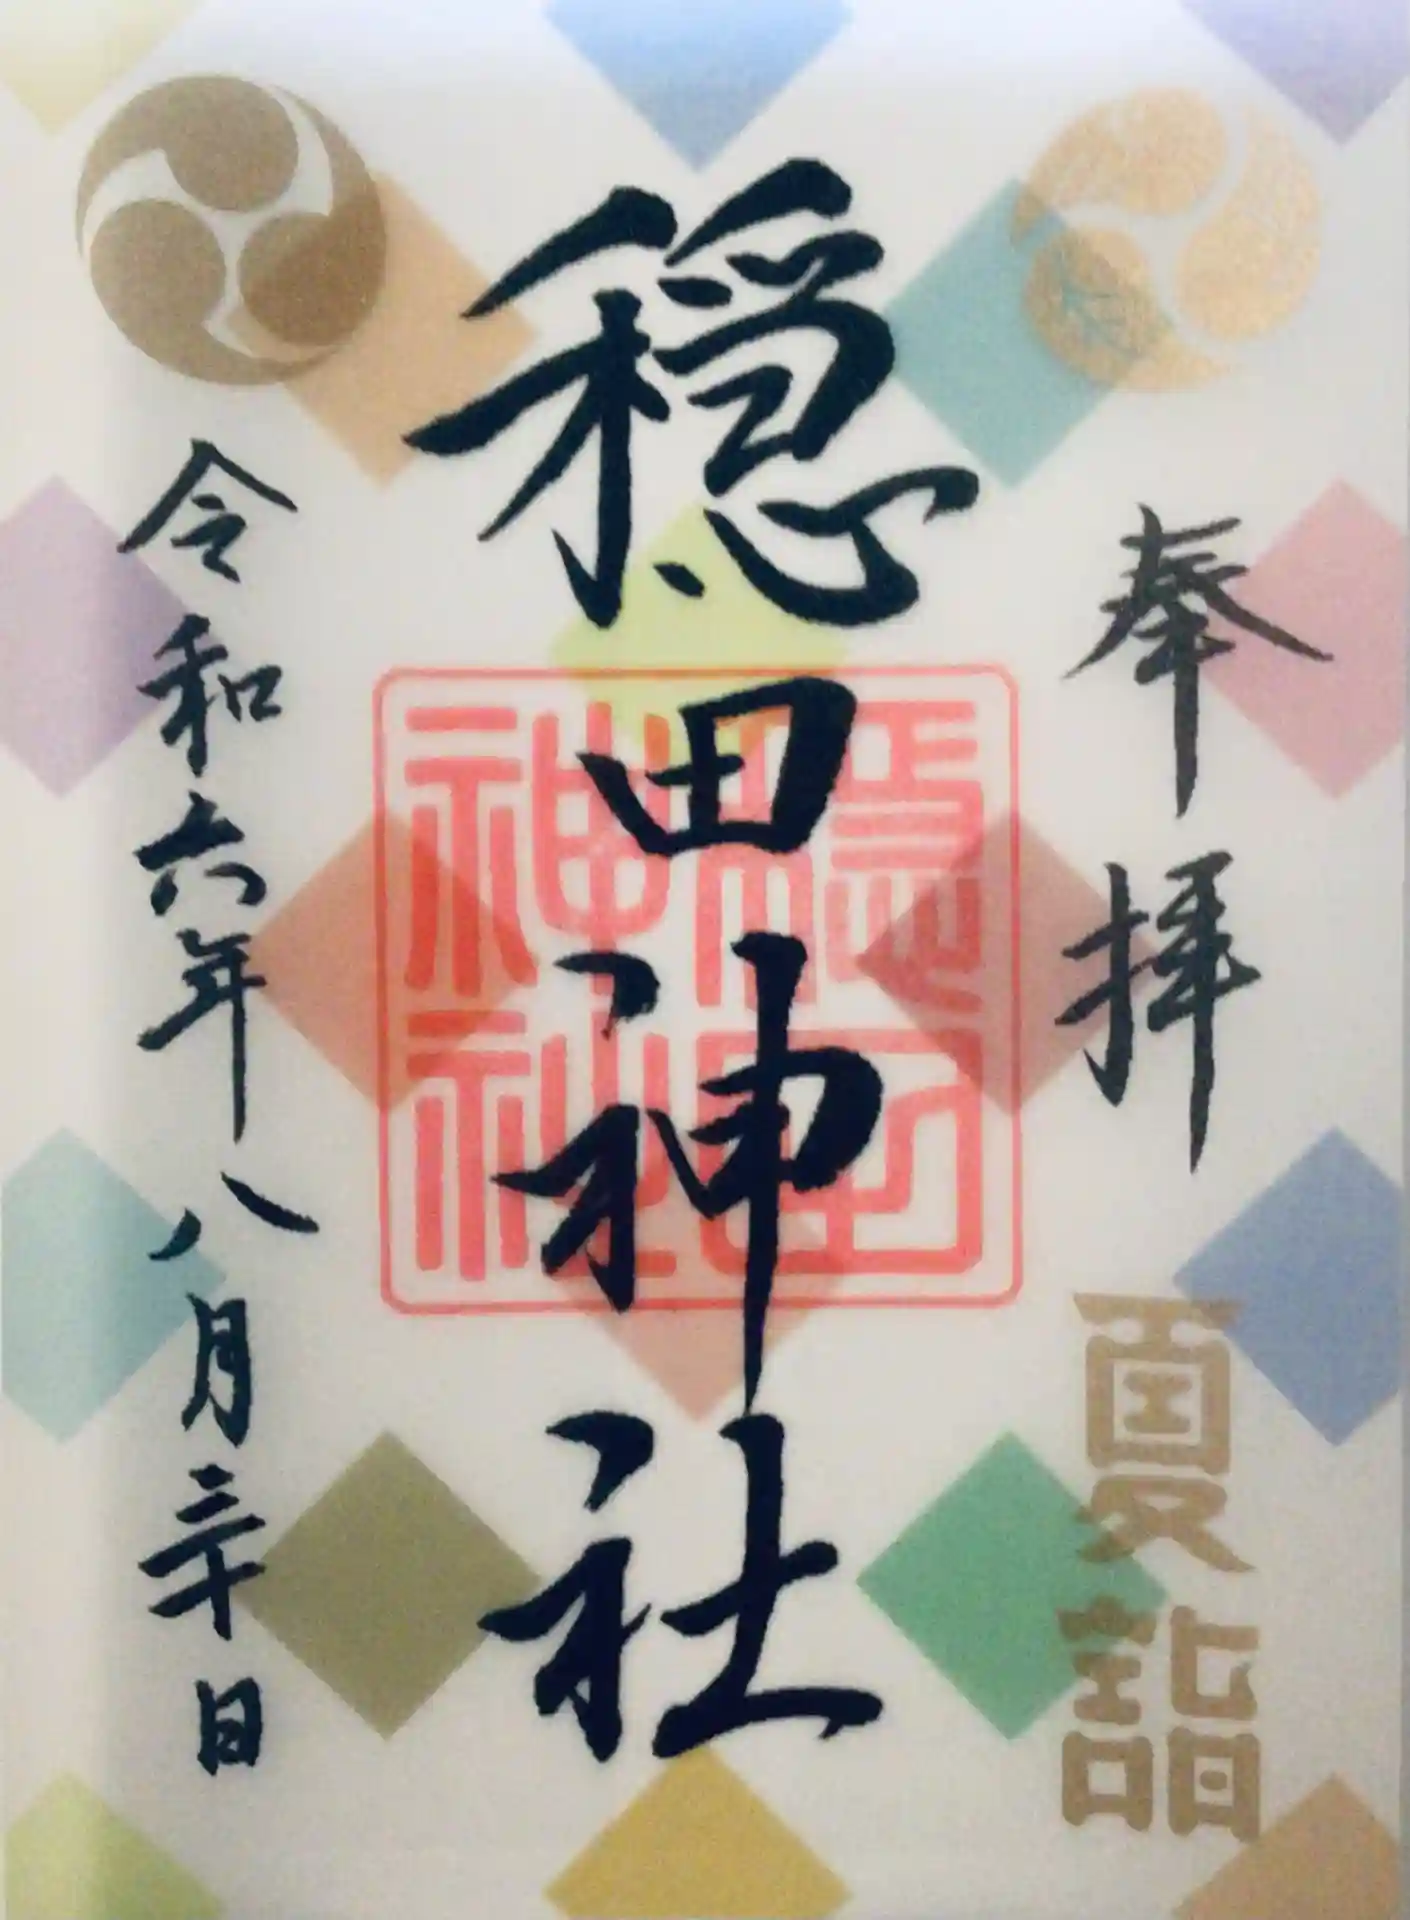 奉拝
夏詣
穏田神社
穏田
神社
令和六年八月三十日